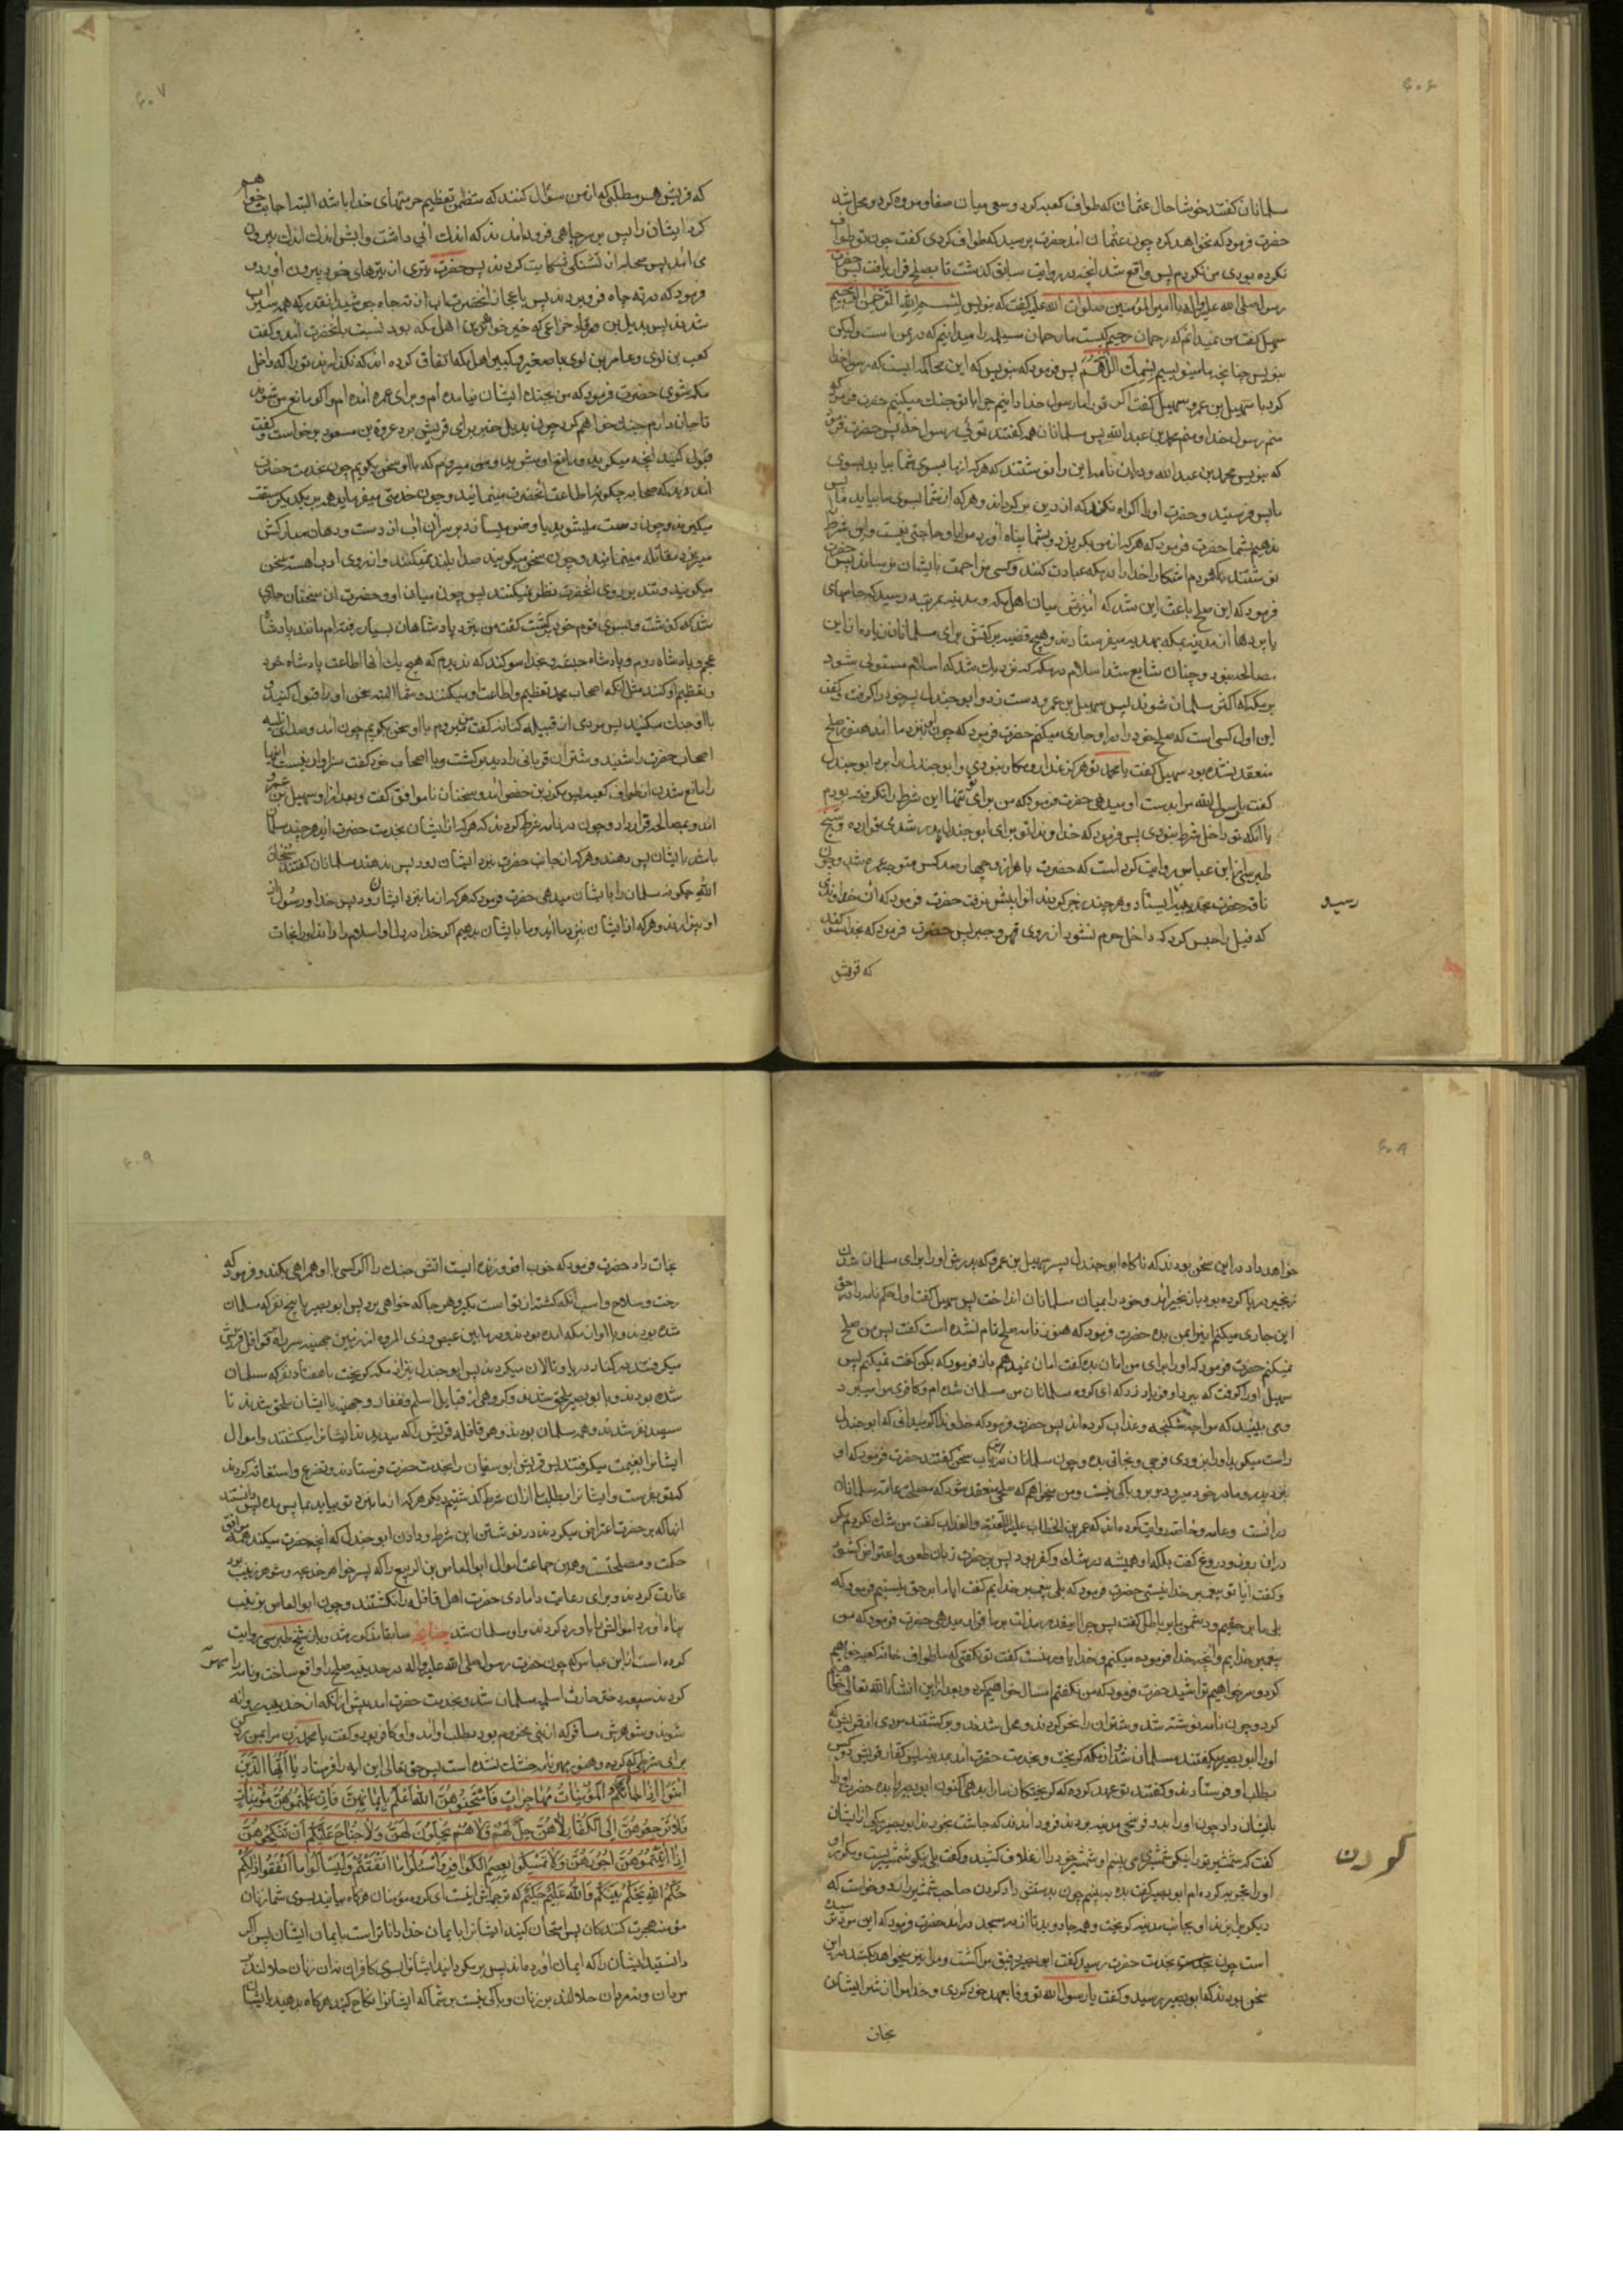 ۴۰۶
سلمانان گفتند خوشا حال عثمان که طواف کعبه کرد و سعی میان صفا و مروه کرد و محل شد
حضرت فرمود که نخواهد کرد چون عثمان آمد حضرت پرسید که طواف کردی گفت چون تو طواف
نکرده بودی من نکردم پس واقع شد آنچه در روایت سابق گذشت تا بصلح قرار یافت پس حضرت
رسول صلی الله علیه و آله با امیر المؤمنین صلوات الله علیه گفت که بنویس بسم الله الرحمن الرحیم
سهیل گفت من نمیدانم که رحمان رحیم کیست ما رحمان مسیلمه را میدانیم که در یمن است ولیکن
بنویس چنانچه ما مینویسیم بسمک اللهم پس فرمود که بنویس که این محاکمه ایست که رسول خدا
کرد با سهیل بن عمرو سهیل گفت اگر تو را ما رسول خدا دانیم چرا با تو جنگ میکنیم حضرت فرمود که
منم رسول خدا و منم محمد بن عبد الله پس مسلمانان همه گفتند توئی رسول خدا پس حضرت فرمود
که بنویس محمد بن عبد الله و در آن نامه این را نوشتند که هر که از ما بسوی شما بیاید بسوی
ما پس فرستید و حضرت او را اکراه نکند که از دین برگرداند و هر که از شما بسوی ما بیاید ما پس
ندهیم بشما حضرت فرمود که هر که از من بگریزد و بشما پناه آورد مرا باو حاجتی نیست و این شرط
نوشتند که مردم آشکارا خدا را در مکه عبادت کنند و کسی مزاحمت بایشان نرساند پس حضرت
فرمود که این صلح باعث این شد که آمیزش میان اهل مکه و مدینه بمرتبه رسید که جامهای
با بردها از مدینه بمکه بهدیه میفرستادند و هیچ قضیه پربرکتتر برای مسلمانان زیاده از این
مصالحه نبود و چنان شایع شد اسلام در مکه که نزدیک شد که اسلام مستولی شود
بر مکه که اکثر مسلمان شوند پس سهیل بن عمرو دست زد و ابو جندل پسر خود را گرفت و گفت
این اول کسی است که صلح خود را در او جاری میکنم حضرت فرمود که چون او نزد ما آمد هنوز صلح
منعقد نشده بود سهیل گفت یا محمد تو هرگز غدار و مکار نبودی و ابو جندل را برد ابو جندل
گفت یا رسول الله مرا بدست او میدهی حضرت فرمود که من برای تو تنها این شرط را نکرفته بودم
یا آنکه تو داخل شرط نبودی پس فرمود که خداوندا تو برای ابو جندل بدر شدی قرار ده و شیخ
طبرسی از ابن عباس روایت کرده است که حضرت با هزار و چهار صد کس متوجه عمره شد و چون
ناقه حضرت بحدیبیه ایستاد و هر چند زجر کردند او را پیش نرفت حضرت فرمود که آن خداوندی
که فیل را حبس کرد که داخل حرم نشود از روی قهر و جبر پس حضرت فرمود که بخدا سوگند
رسید
که قریش
۴۰۷
که قریش هر مطلبی که از من سؤال کنند که متضمن تعظیم حرمتهای خدا باشد البته اجابت خواهم
کرد ایشان را پس بر سر چاهی فرود آمدند که اندک آبی داشت و آبش اندک اندک بیرون
می آمد پس صحابه از تشنگی شکایت کردند پس حضرت تیری از تیرهای خود بیرون آورد و
فرمود که در ته چاه فرو بردند پس باعجاز آنحضرت آب از ته چاه جوشید آنقدر که همه سیراب
شدند پس بدیل بن ورقاء خزاعی که خیر خواهترین اهل مکه بود نسبت بآنحضرت آمد و گفت
کعب بن لوی و عامر بن لوی با صغیر و کبیر اهل مکه اتفاق کرده اند که نگذارند تو را که داخل
مکه شوی حضرت فرمود که من بجنگ ایشان نیامده ام و برای عمره آمده ام و اگر مانع من شوند
تا جان دارم جنگ خواهم کرد چون بدیل خبر برای قریش برد عروة بن مسعود برخواست و گفت
قبول کنید آنچه میگوید و مانع او مشوید و من میروم که با او سخن بگویم چون بخدمت حضرت
آمد دید که صحابه چگونه اطاعت آنحضرت مینمایند و چون خدمتی میفرماید همه بر یکدیگر سبقت
میگیرند و چون دست میشوید یا وضو میسازد بر سر آن آب که از دست و دهان مبارکش
میریزد مقاتله مینمایند و چون سخن میگویند صدا بلند نمیکنند و از روی ادب آهسته سخن
میگویند و تند بر روی آنحضرت نظر نمیکنند پس چون میان او و حضرت آن سخنان جاری
شد که گذشت و بسوی قوم خود برگشت گفت من بنزد پادشاهان بسیار رفته ام مانند پادشاه
عجم و پادشاه روم و پادشاه حبشه و بخدا سوگند که ندیدم که هیچ یک آنها اطاعت پادشاه خود
و تعظیم او کنند مثل آنکه اصحاب محمد تعظیم و اطاعت او میکنند و شما البته سخن او را قبول کنید و
با او جنگ مکنید پس مردی از قبیله کنانه گفت من میروم با او سخن بگویم چون آمد و صدای تلبیه
اصحاب حضرت را شنید و شتران قربانی را دید برگشت و با اصحاب خود گفت سزاوار نیست اینها
را مانع شدن از طواف کعبه پس مکرز بن حفص آمد و سخنان ناموافق گفت و بعد از او سهیل بن عمرو
آمد و بمصالحه قرار داد و چون در نامه شرط کردند که هر که از ایشان بخدمت حضرت آید هر چند مسلمان
باشد بایشان پس دهند و هر که از جانب حضرت بنزد ایشان رود پس ندهند مسلمانان گفتند سبحان
الله چگونه مسلمان را بایشان میدهی حضرت فرمود که هر که از ما بنزد ایشان رود پس خدا و رسول از
او بیزارند و هر که از ایشان بنزد ما آید و ما بایشان بدهیم اگر خدا در دل او اسلام را داند او را نجات
۴۰۸
خواهد داد در این سخن بودند که ناگاه ابو جندل پسر سهیل بن عمرو که پدرش او را برای مسلمان شدن
زنجیر در پا کرده بود با زنجیر آمد و خود را بمیان مسلمانان انداخت پس سهیل گفت اول حکم نامه را در حق
این جاری میکنم این را بمن بده حضرت فرمود که هنوز نامه صلح تمام نشده است گفت پس من صلح
نمیکنم حضرت فرمود که او را برای من امان بده گفت امان نمیدهم باز فرمود که بکن گفت نمیکنم پس
سهیل او را گرفت که ببرد او فریاد زد که ای گروه مسلمانان من مسلمان شده ام و کافری مرا میبرد
و می بینید که مرا چه شکنجه و عذاب کرده اند پس حضرت فرمود که خداوندا اگر میدانی که ابو جندل
راست میگوید او را بزودی فرجی و نجاتی بده و چون مسلمانان در این باب سخن گفتند حضرت فرمود که او
بنزد پدر و مادر خود میرود و بر او باکی نیست و من میخواهم که صلحی منعقد شود که مصلحت عامه مسلمانان
در آنست و عامه و خاصه روایت کرده اند که عمر بن الخطاب علیه اللعنة والعذاب گفت من شک نکردم مگر
در آن روز و دروغ گفت بلکه او همیشه در شک و کفر بود پس بحضرت زبان طعن و اعتراض گشود
و گفت آیا تو پیغمبر خدا نیستی حضرت فرمود که بلی پیغمبر خدایم گفت آیا ما بر حق نیستیم فرمود که
بلی ما بر حقیم و دشمن ما بر باطل گفت پس چرا اینقدر مذلت بر ما قرار میدهی حضرت فرمود که من
پیغمبر خدایم و آنچه خدا فرموده میکنم و خدا یاور منست گفت تو نگفتی که ما طواف خانه کعبه خواهیم
کرد و سر خواهیم تراشید حضرت فرمود که من نگفتم امسال خواهیم کرد و بعد از این انشاء الله تعالی خواهیم
کرد و چون نامه نوشته شد و شتران را نحر کردند و محل شدند و برگشتند مردی از قریش که
او را ابو بصیر میگفتند مسلمان شد و از مکه گریخت و بخدمت حضرت آمد بمدینه پس کفار قریش دو کس
بطلب او فرستادند و گفتند تو عهد کرده که گریختگان ما را بدهی اکنون ابو بصیر را بده حضرت او را
بایشان داد چون او را بردند و فرسخی مدینه بردند فرود آمدند که چاشت بخورند ابو بصیر بیکی از ایشان
گفت که شمشیر تو را نیکو شمشیری می بینم او شمشیر خود را از غلاف کشید و گفت بلی نیکو شمشیریست و مکرر
او را تجربه کرده ام ابو بصیر گفت بده ببینم چون بدستش داد گردن صاحب شمشیر را زد و خواست که
دیگری را بزند او بجانب مدینه گریخت و همه جا دوید تا از در مسجد درآمد حضرت فرمود که این مرد ترسیده
است چون بخدمت حضرت رسید گفت ابو بصیر رفیق مرا کشت و مرا نیز میخواهد بکشد در این
سخن بودند که ابو بصیر رسید و گفت یا رسول الله تو وفا بعهد خود کردی و خدا مرا از شر ایشان
گردن
نجات
۴۰۹
نجات داد حضرت فرمود که خوب افروزنده ایست آتش جنگ را اگر کسی با او همراهی بکند و فرمود که
رخت و سلاح و اسب آنکه کشته از تو است بگیر و هر جا که خواهی برو پس ابو بصیر با پنج نفر که مسلمان
شده بودند و با او از مکه آمده بودند در مابین عیص و ذی المروه از زمین جهینه سر راه قوافل قریش
میگرفتند در کنار دریا و تالان میکردند پس ابو جندل نیز از مکه گریخت با هفتاد نفر که مسلمان
شده بودند و با ابو بصیر ملحق شدند و گروهی از قبایل اسلم و غفار و جهینه با ایشان ملحق شدند تا
سیصد نفر شدند و همه مسلمان بودند و هر قافله قریش را که میدیدند ایشانرا میکشتند و اموال
ایشانرا بغنیمت میگرفتند پس قریش ابو سفیان را بخدمت حضرت فرستادند و تضرع و استغاثه کردند
که تو بفرست و ایشانرا بطلب ما از آن شرط گذشتیم دیگر هر که از ما بنزد تو بیاید بما پس مده پس دانستند
آنها که بر حضرت اعتراض میکردند در نوشتن این شرط و دادن ابو جندل که آنچه حضرت میکند همه موافق
حکمت و مصلحتست و همین جماعت اموال ابو العاص بن الربیع را که پسر خواهر خدیجه و شوهر زینب بود
غارت کردند و برای رعایت دامادی حضرت اهل قافله را نکشتند و چون ابو العاص بزینب
پناه آورد اموالش را باو رد کردند و او مسلمان شد چنانچه سابقا مذکور شد و باز شیخ طبرسی روایت
کرده است از ابن عباس که چون حضرت رسول صلی الله علیه و آله در حدیبیه صلح را واقع ساخت و نامه را مهر
کردند سبیعه دختر حارث اسلمیه مسلمان شد و بخدمت حضرت آمد پیش از آنکه از حدیبیه روانه
شوند و شوهرش مسافر که از بنی مخزوم بود بطلب او آمد و او کافر بود و گفت یا محمد زن مرا بمن رد کن
برای شرطی که کرده و هنوز مهر نامه خشک نشده است پس حق تعالی این آیه را فرستاد یا أیها الذین
آمنوا إذا جاءکم المؤمنات مهاجرات فامتحنوهن الله أعلم بإیمانهن فإن علمتموهن مؤمنات
فلا ترجعوهن إلی الکفار لا هن حل لهم ولا هم یحلون لهن ولا جناح علیکم أن تنکحوهن
إذا آتیتموهن أجورهن ولا تمسکوا بعصم الکوافر واسئلوا ما أنفقتم ولیسألوا ما أنفقوا ذلکم
حکم الله یحکم بینکم والله علیم حکیم که ترجمه اش اینست ای گروه مؤمنان هرگاه بیایند بسوی شما زنان
مؤمنه هجرت کنندگان پس امتحان کنید ایشانرا بایمان خدا داناتر است بایمان ایشان پس اگر
دانستید ایشان را که ایمان آورده اند پس برمگردانید ایشانرا بسوی کافران نه آن زنان حلالند بر
مردان و نه مردان حلالند بر زنان و باکی نیست بر شما که ایشانرا نکاح کنید هرگاه بدهید بایشان